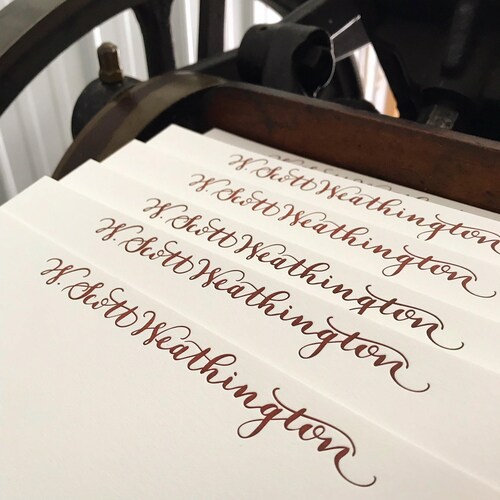 W. Scott Weathington
W. Scott Weathington
W. Scott Weathington
W. Scott Weathington
W. Scott Weathington